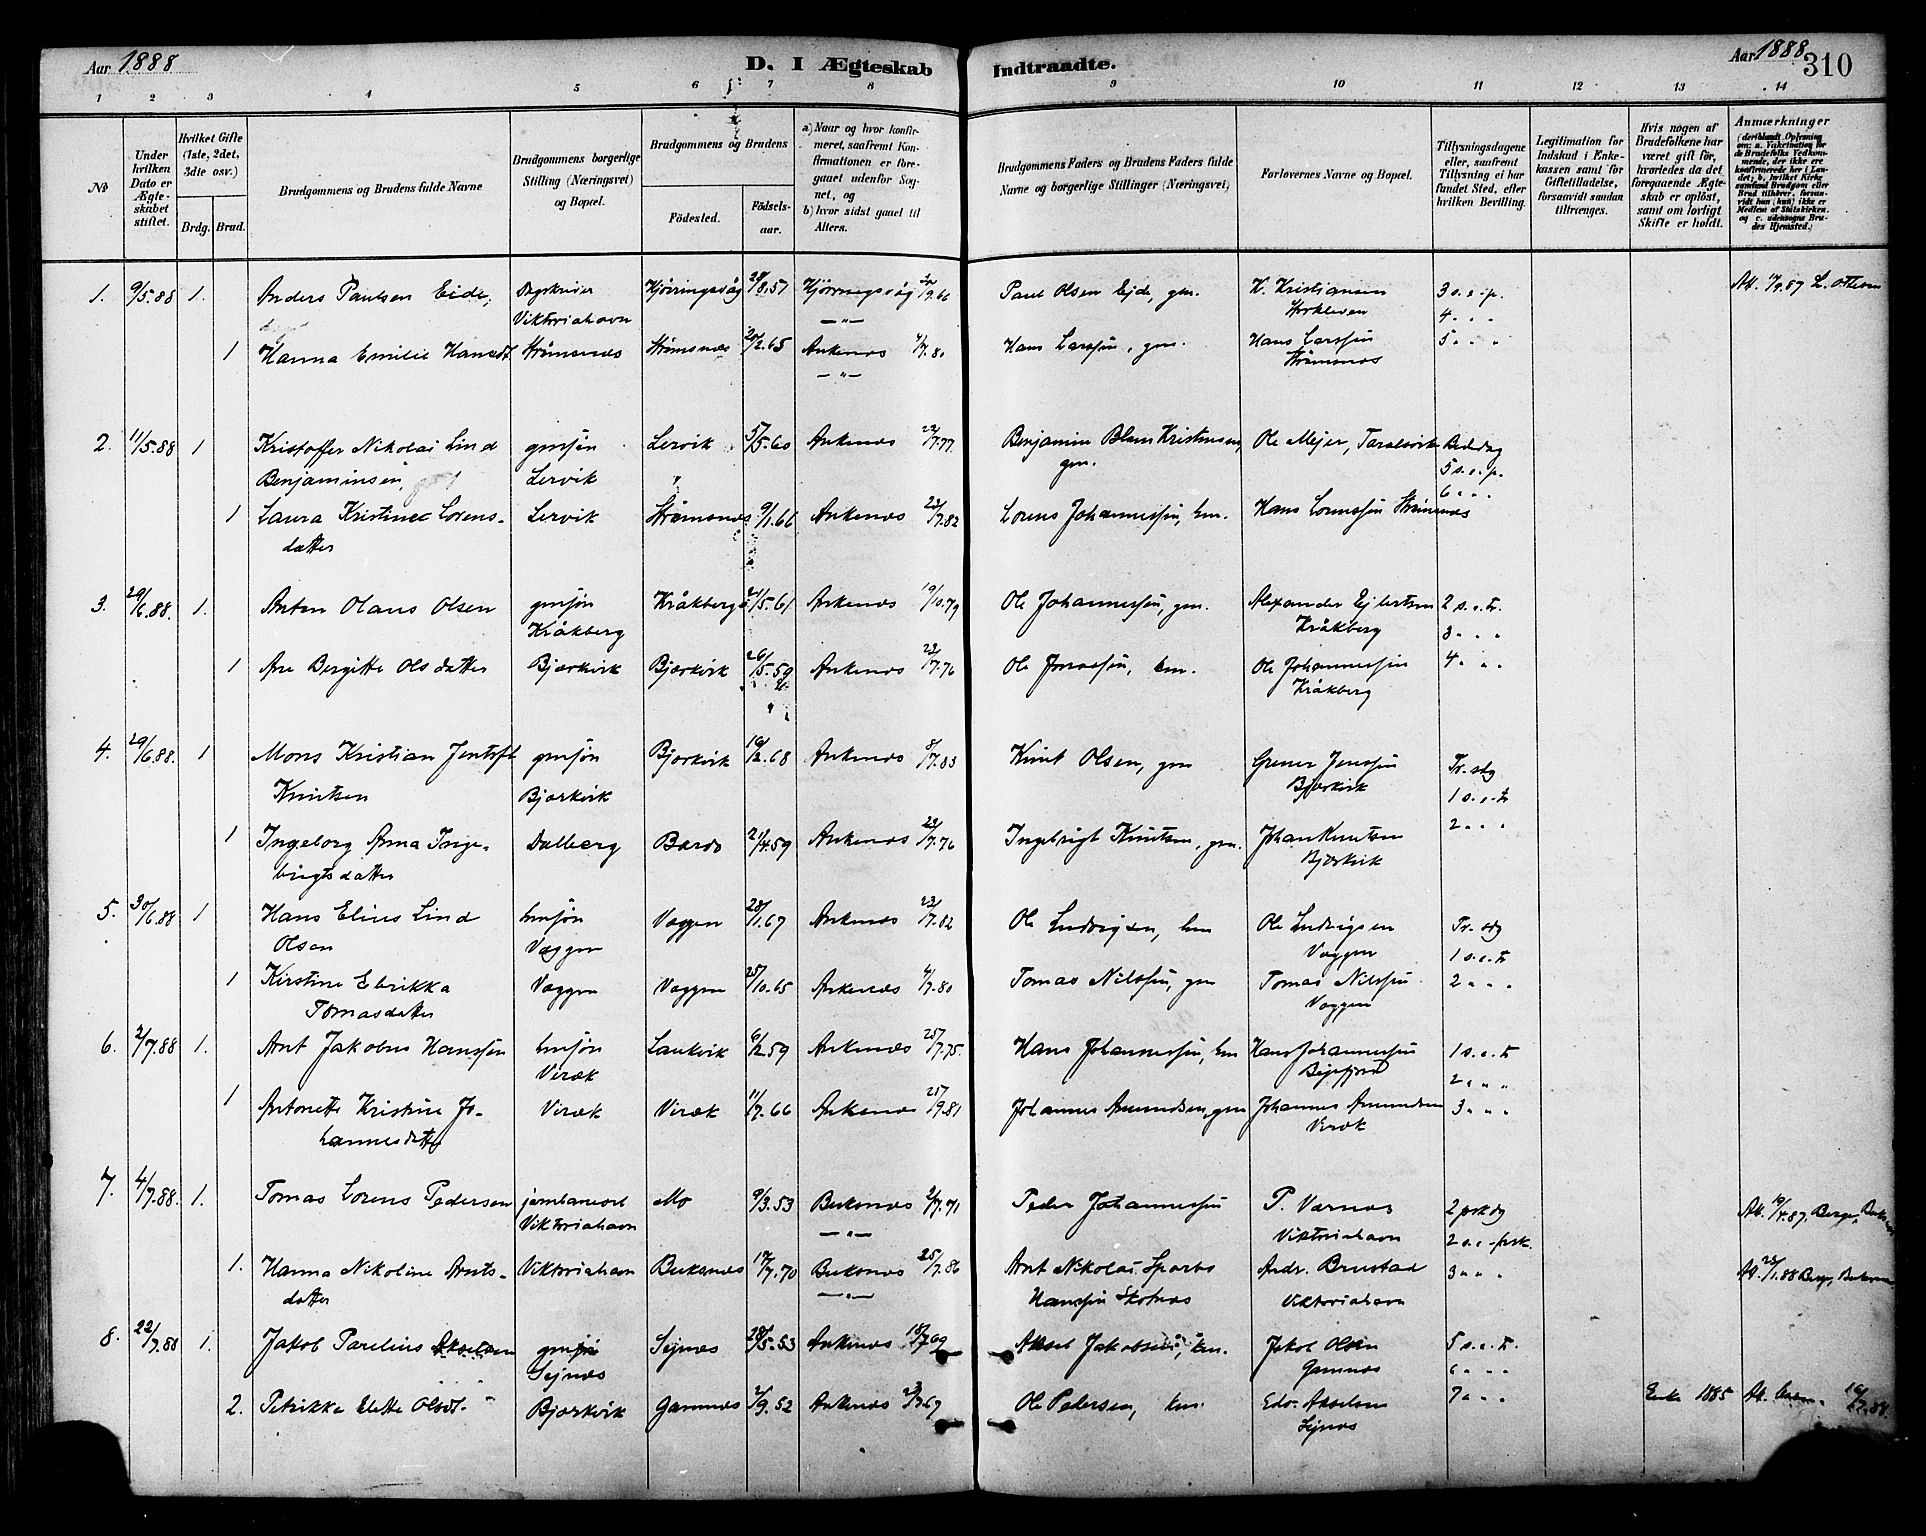 Aar 1888
D. I Ægteskab Indtraadte.
Aar 1888
310
1 2 3 4 5 6 7 8 9 10 11 12 13 14
No
Under hvilken Dato er Ægteskabet stiftet.
Hvilket Gifte (1ste, 2det, 3die osv.)
Brdg. Brud.
Brudgommens og Brudens fulde Navne
Brudgommens borgerlige Stilling (Næringsvei) og Bopæl.
Brudgommens og Brudens
Fødested.
Fødselsaar.
a) Naar og hvor konfirmeret, saafremt Konfirmationen er foregaaet udenfor Sognet, og
b) hvor sidst gaaet til Alters.
Brudgommens Faders og Brudens Faders fulde Navne og borgerlige Stillinger (Næringsvei)
Forlovernes Navne og Bopæl.
Tillysningsdagene eller, saafremt Tillysning ei har fundet Sted, efter hvilken Bevilling.
Legitimation for Indskud i Enkekassen samt for Giftetilladelse, forsaavidt saadan tiltrænges.
Hvis nogen af Brudefolkene har været gift før, hvorledes da det foregaaende Ægteskab er opløst, samt om lovligt Skifte er holdt.
Anmærkninger
(deriblandt Oplysning om: a. Vaksination for de Brudefolks Vedkommende, der ikke ere konfirmerede her i Landet; b. hvilket Kirkesamfund Brudgom eller Brud tilhører, forsaavidt han (hun) ikke er Medlem af Statskirken, og c. udensogns Brudes Hjemsted.)
1. 9/5.88 1. Anders Paulsen Eide, Viktoriahavn 57 Paul Olsen Eide, gm. K. Kristiansen 3 s. e. p.
4 " "
1 Hanna Emilie Hansdt Strømsnes Strømsnes 20/2.65 Ankenes 4/7.80 Hans Larssøn, gm. Hans Larssøn Strømsnes 5 " "
2. 11/5.88 1 Kristoffer Nikolai Lind Benjaminsen gmsjøn Lervik Lervik 5/5.60 Ankenes 22/7.77 Benjamin Kristensen, gm. Ole Mejer, Bededag
5 s. e. p.
6 " "
1 Laura Kristine Lorensdatter Lervik Strømsnes 9/1.66 Ankenes 23/7.82 Lorens Johannessøn, hm. Hans Lorenssøn Strømsnes
3. 29/6.88. 1. Anton Olaus Olsen gmsjøn Kråkberg Kråkberg 21/5.61 Ankenes 19/10.79 Ole Johannessøn, gm. Alexander Ejlertsen Kråkberg 2 s. e. tr.
3 " "
1 Ane Bergitte Olsdatter Bjærkvik Bjærkvik 26/5.59 Ankenes 23/7.76 Ole Jonassøn, hm. Ole Johannessøn Kråkberg 4 " "
4. 29/6.88. 1 Mons Kristian Knutsen gmsjøn Bjærkvik Bjærkvik 16/2.68 Ankenes 8/7.83 Knut Olsen, gm Jenssøn Bjærkvik Tr. sdg
1 s. e. tr
1 Ingeborg Anna Ingebrigtsdatter Dalberg Bardo 21/4.59 Ankenes 23/7.76 Ingebrigt Knutsen, gm. Johan Knutsen Bjærkvik 2 " "
5. 30/6.88 1 Hans Elius Lind Olsen hmsjøn Væggen Væggen 28/1.67 Ankenes 23/7.82 Ole Ludvigsen, hm Ole Ludvigsen Væggen Tr. sdg
1 s. e. tr
1 Kirstine Elrikka Tomasdatter Væggen Væggen 25/10.65 Ankenes 4/7.80 Tomas Nilssøn, gm Tomas Nilssøn Væggen 2 " "
6. 2/7.88 1. Arnt Jakobus Hanssøn hmsjøn Viræk Laukvik 6/12.59 Ankenes 25/7.75. Hans Johannessøn, hm Hans Johannessøn Bejsfjord 1 s. e. tr
2 " "
1 Antonette Kristine Johannesdatter Viræk Viræk 11/7.66 Ankenes 25/9.81 Johannes Amundsen, gm Johannes Amundsen Viræk 3 " "
7. 4/7.88. 1. Tomas Lorens Pedersen Viktoriahavn Mo 9/3.53 Buksnes 2/7.71 Peder Johannessøn P. Værnes Viktoriahavn 2 pskdg
2 s. e. psk. 19/4.87,
1. Hanna Nikoline Arntsdatter Viktoriahavn Buksnes 17/7.70 Buksnes 25/7.86 Arnt Nikolai Sparbo Hanssøn Andr. Brustad Viktoriahavn 3 " "
8. 22/7.88 1. Jakob Parelius Akselsen gmsjøn Sejnes Sejnes 28/5.53 Ankenes 18/7.69 Aksel Jakobsen, hm. Jakob Olsen Gamnes 5 s. e. tr.
6 " "
2. Petrikke Olsdt. Bjærkvik Gamnes 2/9.52 Ankenes 67 Ole Pedersen, hm. Edv. Akselsen Sejnes 7 " " Enke 1885